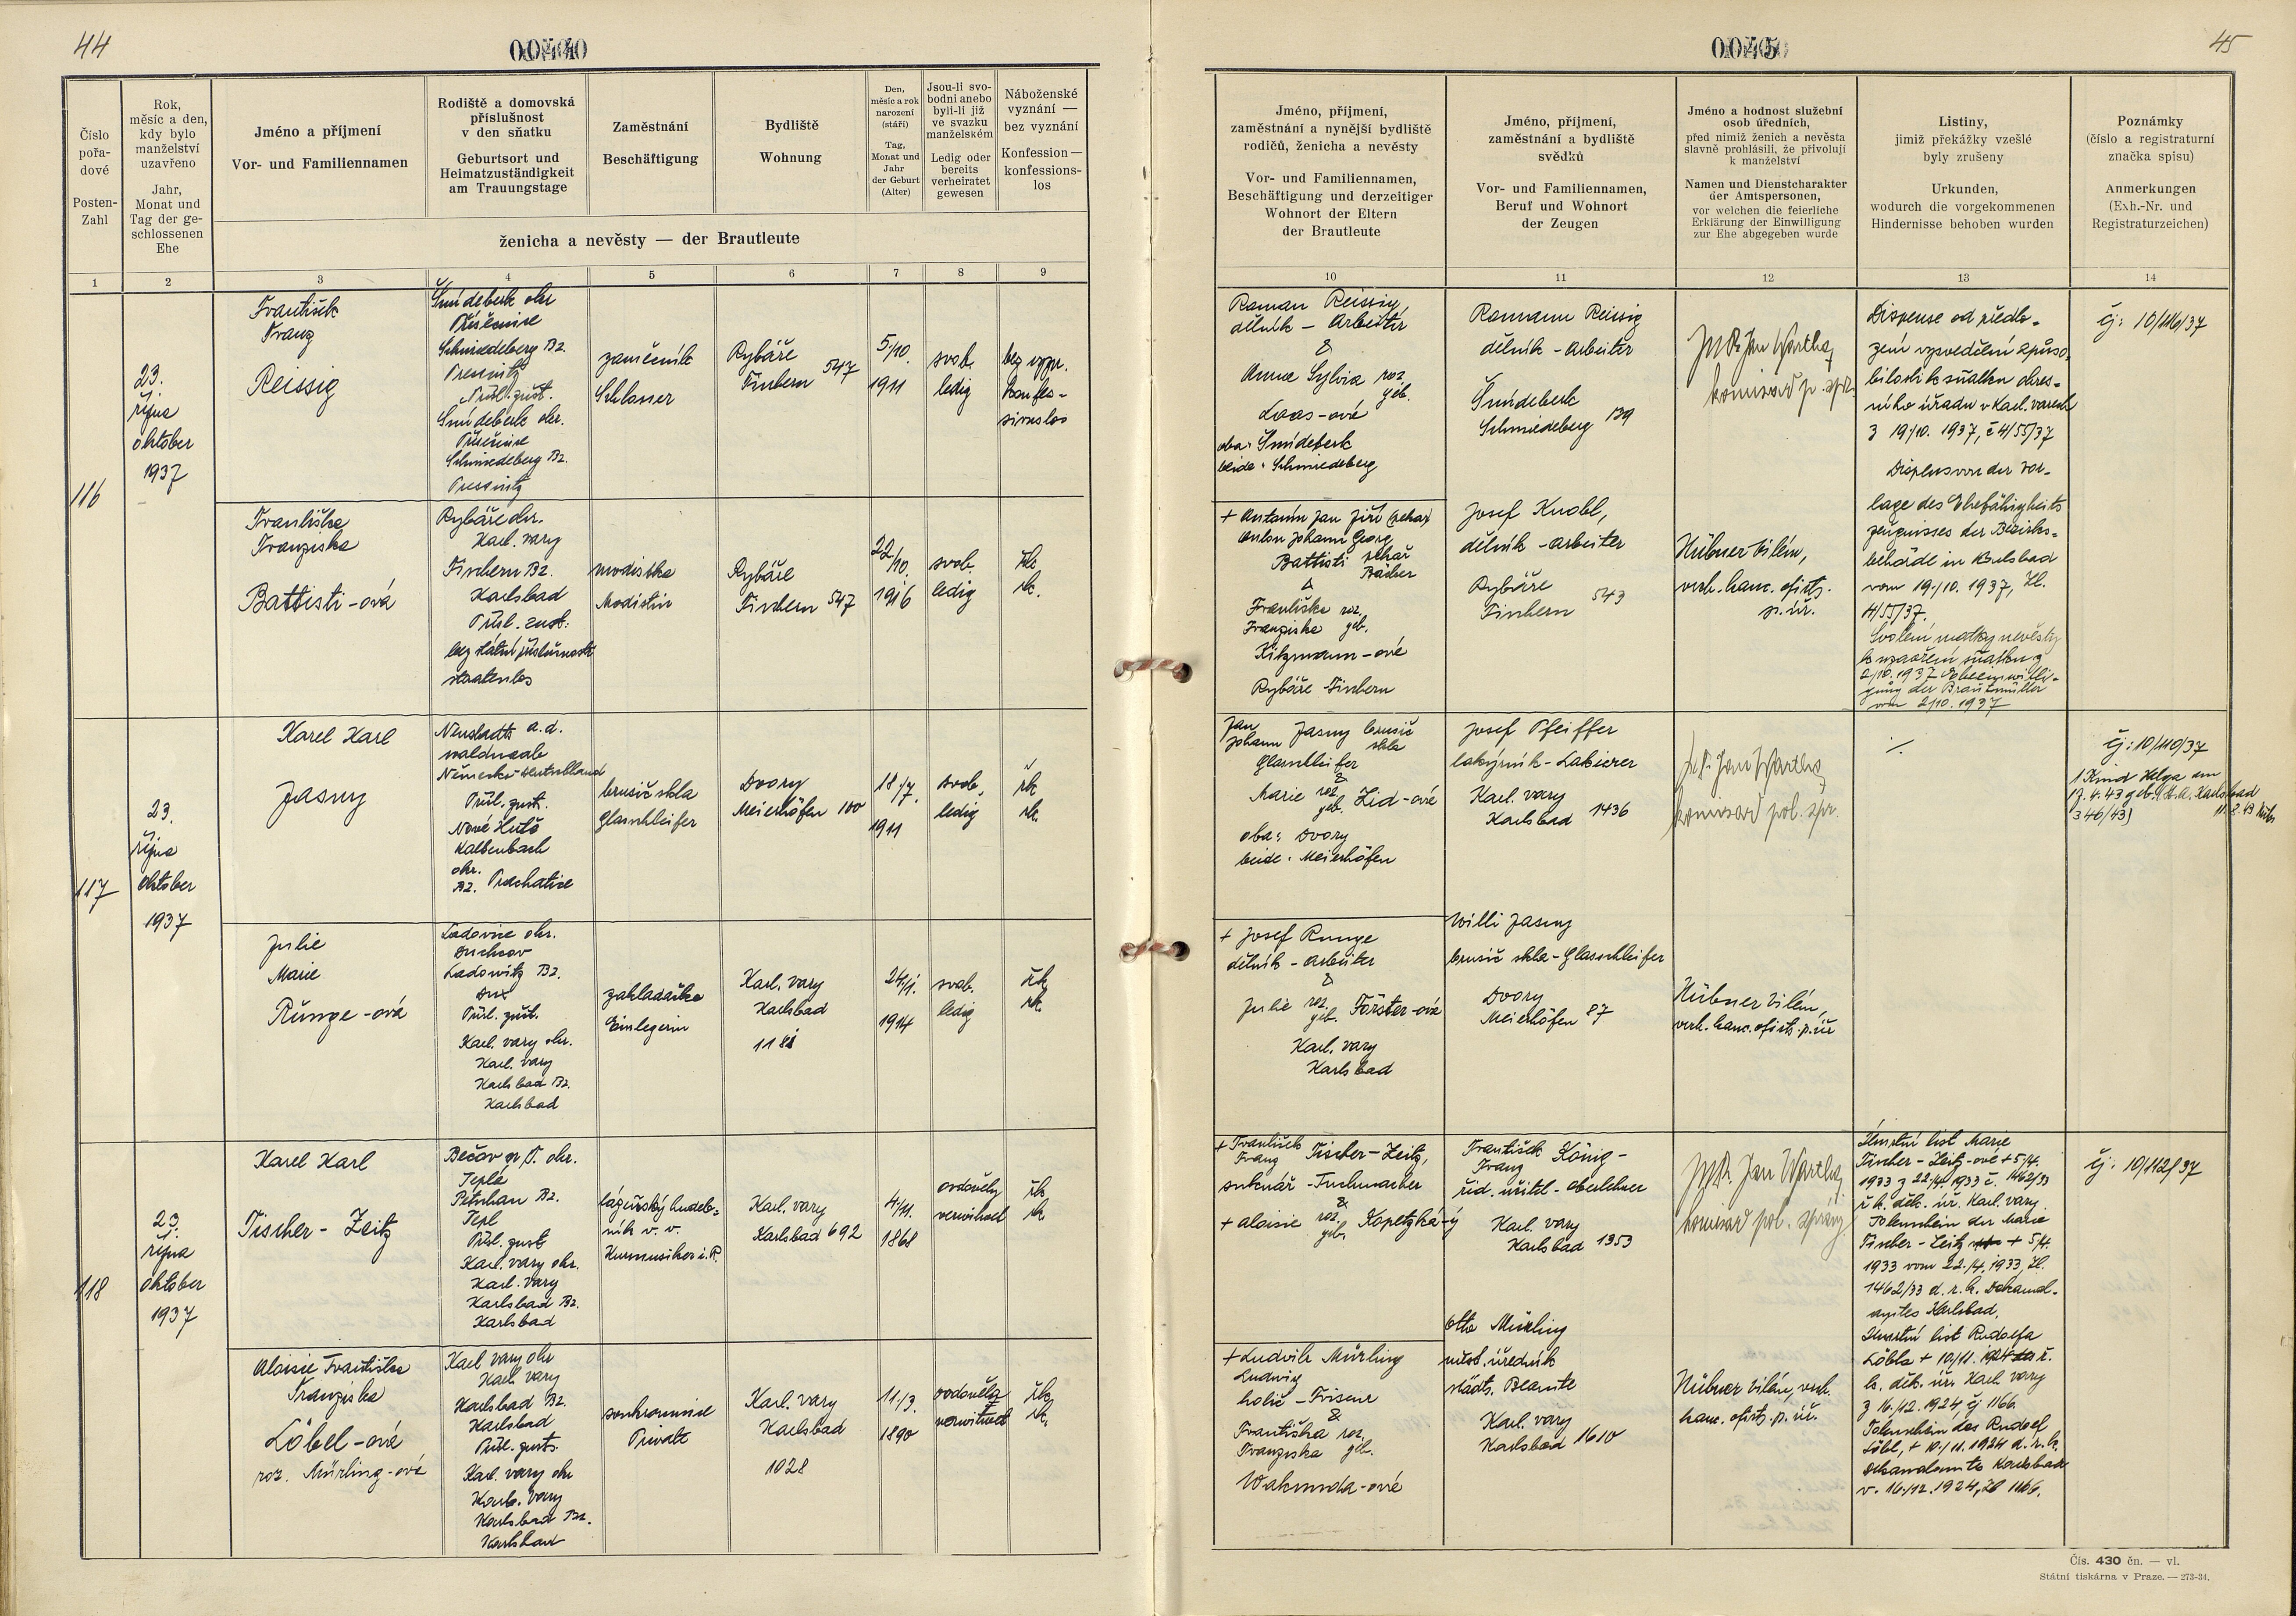 44
0044
Číslo
pořa-
dové
Posten-
Zahl
Rok,
měsíc a den,
kdy bylo
manželství
uzavřeno
Jahr,
Monat und
Tag der ge-
schlossenen
Ehe
Jméno a příjmení
Vor- und Familiennamen
Rodiště a domovská
příslušnost
v den sňatku
Geburtsort und
Heimatzuständigkeit
am Trauungstage
Zaměstnání
Beschäftigung
Bydliště
Wohnung
Den,
měsíc a rok
narození
(stáří)
Tag,
Monat und
Jahr
der Geburt
(Alter)
Jsou-li svo-
bodni anebo
byli-li již
ve svazku
manželském
Ledig oder
bereits
verheiratet
gewesen
Náboženské
vyznání —
bez vyznání
Konfession —
konfessions-
los
ženicha a nevěsty — der Brautleute
1 2 3 4 5 6 7 8 9
116
23.
října
oktober
1937
František
Franz
Reissig
Šmídeberk okr
Přísečnice
Schmiedeberg Bz.
Pressnitz
Přísl. zust.
Šmídeberk okr.
Přísečnice
Schmiedeberg Bz.
Pressnitz
zámečník
Schlosser
Rybáře
Fischern 547
5/10.
1911
svob.
ledig
bez vyzn.
konfes-
sionslos
Františka
Franziska
Battisti-ová
Rybáře okr.
Karl. vary
Fischern Bz.
Karlsbad
Přísl. zust.
bez státní příslušnosti
staatenlos
modistka
Modistin
Rybáře
Fischern 547
22/10.
1916
svob.
ledig
řk.
rk.
117
23.
října
oktober
1937
Karel Karl
Jasny
Neustadt a.d.
waldnaab
Německo-Deutschland
Přísl. zust.
Nové Hutě
Kaltenbach
okr.
Bz. Prachatice
brusič skla
Glasschleifer
Dvory
Meierhöfen 100
18/7.
1911
svob.
ledig
řk.
rk.
Julie
Marie
Runge-ová
Ladovice okr.
Duchcov
Ladowitz Bz.
Dux
Přísl. zust.
Karl. vary okr.
Karl. vary
Karlsbad Bz.
Karlsbad
zakladačka
Einlegerin
Karl. vary
Karlsbad
1181
24/1.
1914
svob.
ledig
řk.
rk.
118
23.
října
oktober
1937
Karel Karl
Fischer - Zeitz
Bečov n/T. okr.
Teplá
Petschau Bz.
Tepl
Přísl. zust
Karl. vary okr.
Karl. vary
Karlsbad Bz.
Karlsbad
lázeňský hudeb-
ník v. v.
Kurmusiker i. R.
Karl. vary
Karlsbad 692
4/11.
1868
ovdovělý
verwitwet
řk.
rk
Aloisie Františka
Franziska
Löbel-ová
roz. Mürling-ová
Karl vary okr
Karl. vary
Karlsbad Bz.
Karlsbad
Přísl. zust.
Karl. vary okr
Karl. vary
Karlsbad Bz.
Karlsbad
soukromnice
Private
Karl. vary
Karlsbad
1028
11/3.
1890
ovdovělá
verwitwet
řk.
rk.
45
0045
Jméno, příjmení,
zaměstnání a nynější bydliště
rodičů, ženicha a nevěsty
Vor- und Familiennamen,
Beschäftigung und derzeitiger
Wohnort der Eltern
der Brautleute
Jméno, příjmení,
zaměstnání a bydliště
svědků
Vor- und Familiennamen,
Beruf und Wohnort
der Zeugen
Jméno a hodnost služební
osob úředních,
před nimiž ženich a nevěsta
slavně prohlásili, že přivolují
k manželství
Namen und Dienstcharakter
der Amtspersonen,
vor welchen die feierliche
Erklärung der Einwilligung
zur Ehe abgegeben wurde
Listiny,
jimiž překážky vzešlé
byly zrušeny
Urkunden,
wodurch die vorgekommenen
Hindernisse behoben wurden
Poznámky
(číslo a registraturní
značka spisu)
Anmerkungen
(Exh.-Nr. und
Registraturzeichen)
10 11 12 13 14
Roman Reissig,
dělník - Arbeiter
&
Anna Sylvia roz.
geb.
Loos-ová
oba: Šmídeberk
beide: Schmiedeberg
Romann Reissig
dělník - Arbeiter
Šmídeberk
Schmiedeberg 139
JUDr. Jan Wartha,
komisař p. spr.
Dispense od předlo-
žení vysvědčení způso-
bilosti k sňatku okres-
ního úřadu v Karl. varech
z 19/10. 1937, č 4/55/37
Dispens von der Vor-
lage des Ehefähigkeits
zeugnisses der Bezirks-
behörde in Karlsbad
vom 19./10. 1937, Zl.
4/55/37.
Svolení matky nevěsty
k uzavření sňatku z
2/10. 1937 Eheeinwilli-
gung der Brautmutter
vom 2/10. 1937
čj: 10/116/37
+ Antonín Jan Jiří (pekař)
Anton Johann Georg
Battisti pekař
Bäcker
&
Františka roz.
Franziska geb.
Kitzmann-ové
Rybáře-Fischern
Josef Knobl,
dělník - Arbeiter
Rybáře
Fischern 543
Hübner Vilém,
verh. kanc. oficiz.
p. úř.
Jan
Johann Jasny brusič
skla
Glasschleifer
&
Marie roz.
geb. Zid-ová
oba: Dvory
beide: Meierhöfen
Josef Pfeiffer
lakýrník - Lakierer
Karl. vary
Karlsbad 1436
JUDr. Jan Wartha,
komisař pol. spr.
./.
čj: 10/110/37
1 Kind Helga am
17.4.43 geb. (St. A. Karlsbad
346/43)
+ Josef Runge
dělník - Arbeiter
&
Julie roz.
geb. Förster-ová
Karl. vary
Karlsbad
Willi Jasny
brusič skla - Glasschleifer
Dvory
Meierhöfen 87
Hübner Vilém,
verh. kanc. oficiz. p. úř
+ František
Franz Fischer-Zeitz,
soukenář - Tuchmacher
&
+ Aloisie roz.
geb. Kopetzká-ý
František
Franz König -
říd. učitel - Oberlehrer
Karl. vary
Karlsbad 1353
JUDr. Jan Wartha,
komisař pol. správy
Úmrtní list Marie
Fischer-Zeitz-ové + 5/4.
1933 z 22/4. 1933 č. 1462/33
ř. k. děk. úř. Karl. vary.
Totenschein der Marie
Fischer-Zeitz + 5/4.
1933 vom 22./4. 1933, Zl.
1462/33 d. r. k. Dekanal-
amtes Karlsbad.
Úmrtní list Rudolfa
Löbla + 10/11. 1924 ř.
k. děk. úř. Karl. vary
z 16./12. 1924 čj 1166.
Totenschein des Rudolf
Löbl, + 10./11. 1924 d. r. k.
Dekanalamtes Karlsbad
v. 16./12. 1924, Zl 1166.
čj: 10/112/37
+ Ludvík Mürling
Ludwig
holič - Friseur
&
Františka roz.
Franziska geb.
Wakunda-ové
Otto Mürling
měst. úředník
städt. Beamte
Karl. vary
Karlsbad 1610
Hübner Vilém, verh.
kanc. oficiz. p. úř.
Čís. 430 čn. — vl.
Státní tiskárna v Praze. — 273-34.